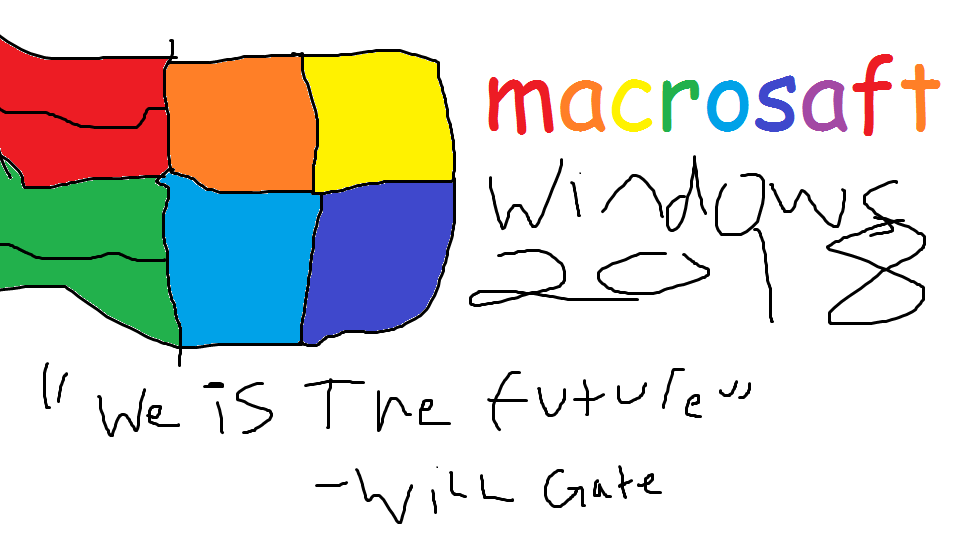 macrosaft
Windows
2018
"We is The future"
-Will Gate